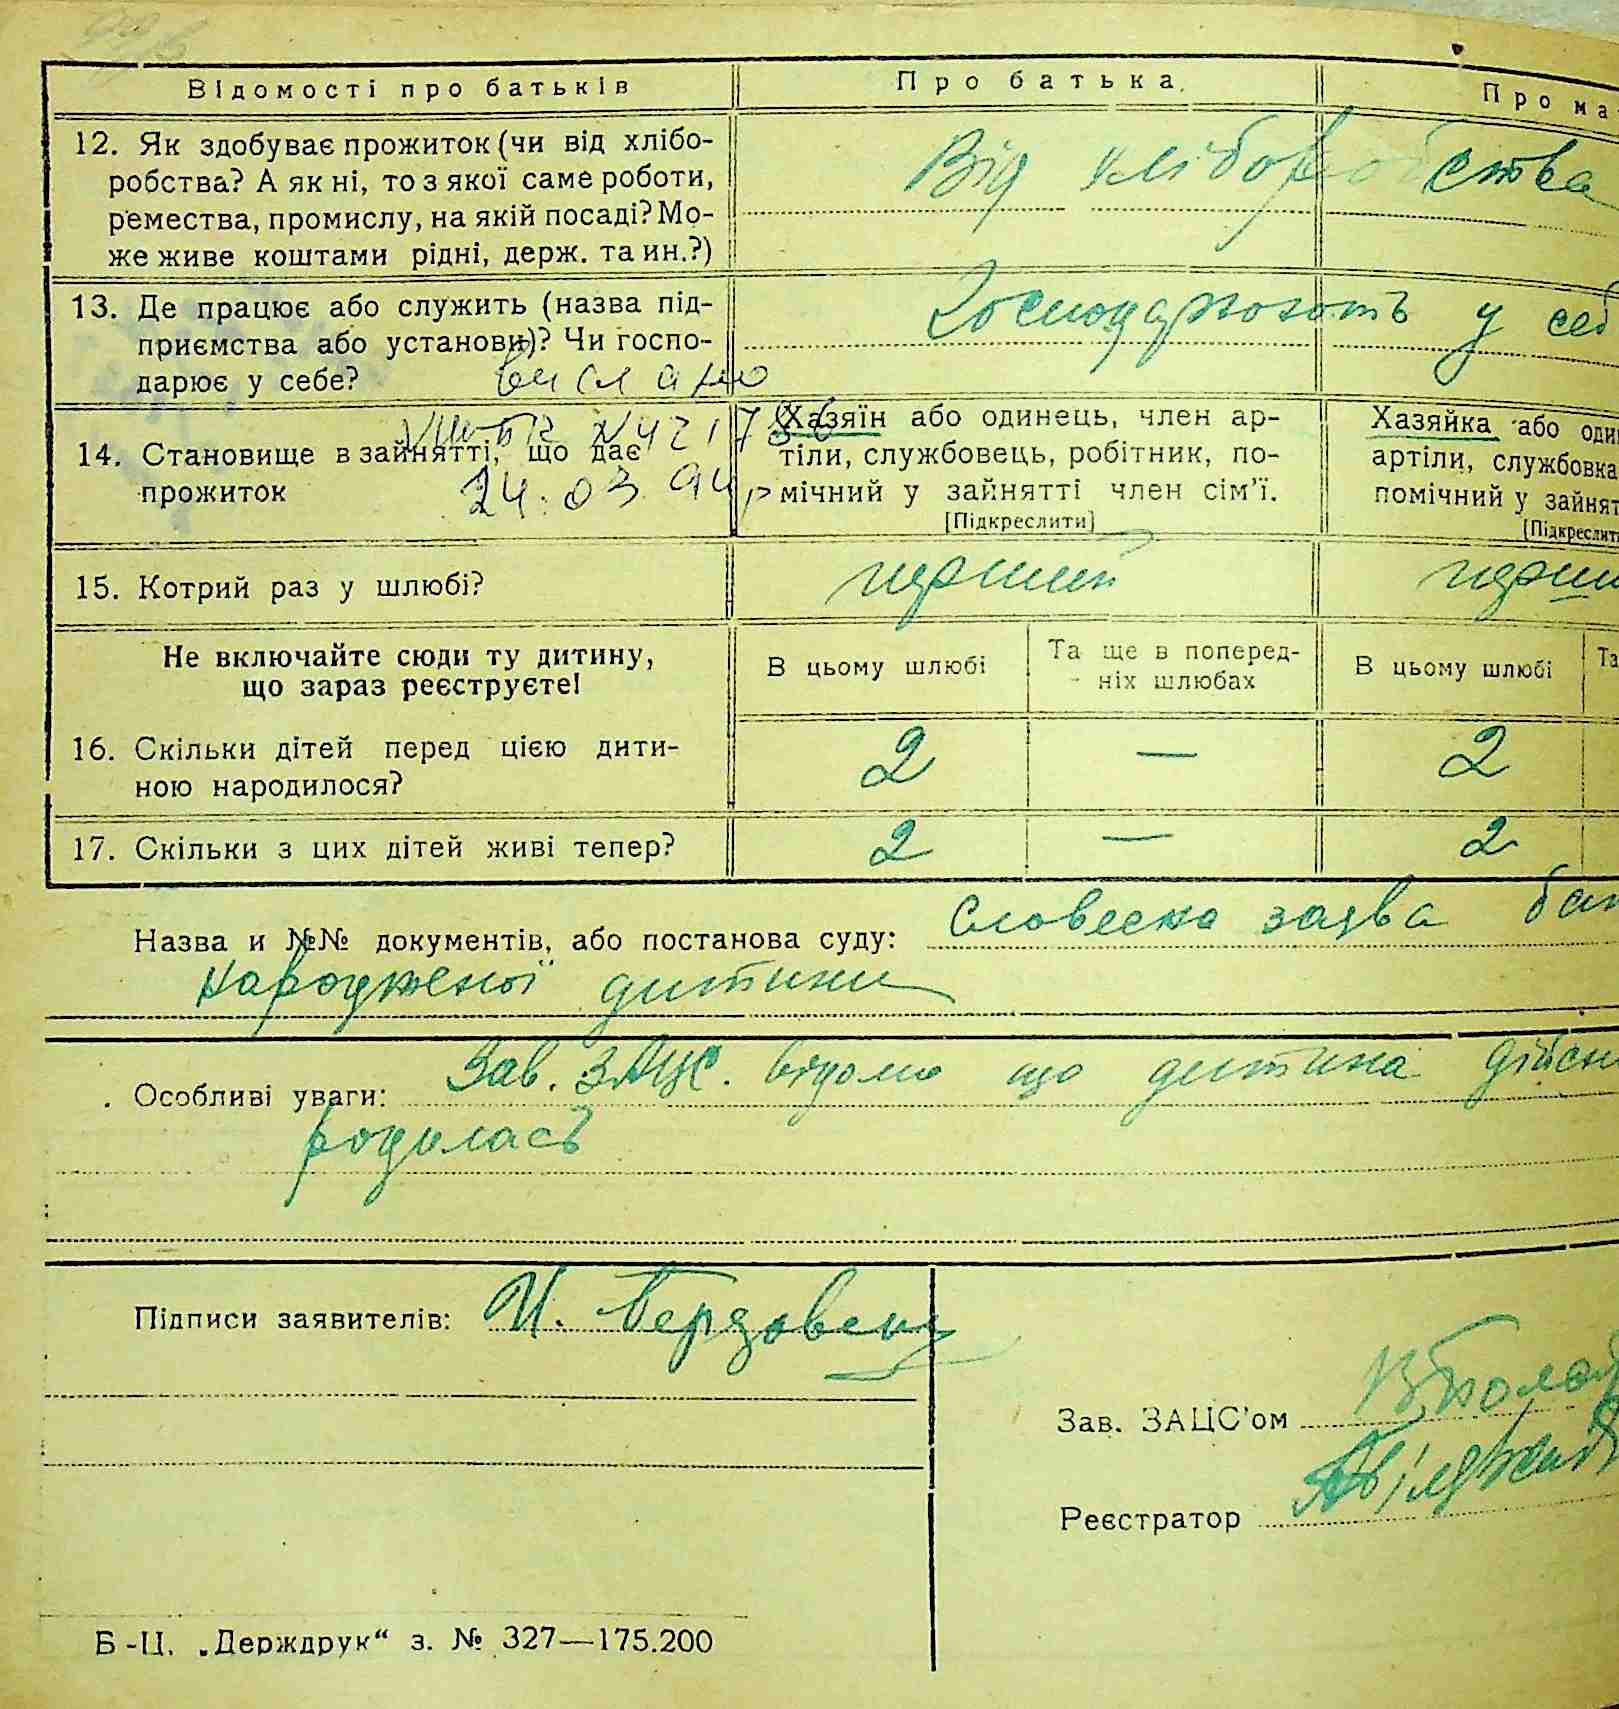 Відомості про батьків
Про батька
Про ма
12. Як здобуває прожиток (чи від хлібо-
робства? А як ні, то з якої саме роботи,
ремества, промислу, на якій посаді? Мо-
же живе коштами рідні, держ. та ин.?)
Від хліборобства
13. Де працює або служить (назва під-
приємства або установи)? Чи госпо-
дарює у себе?
Господарюють у себ
вислано
14. Становище в зайнятті, що дає
прожиток
24.03.94р
Хазяїн або одинець, член ар-
тіли, службовець, робітник, по-
мічний у зайнятті член сім'ї.
[Підкреслити]
Хазяйка або оди
артіли, службовка
помічний у зайнят
[Підкреслити
15. Котрий раз у шлюбі?
перший
перши
Не включайте сюди ту дитину,
що зараз реєструєте!
В цьому шлюбі
Та ще в поперед-
ніх шлюбах
В цьому шлюбі
Та
16. Скільки дітей перед цією дити-
ною народилося?
2 — 2
17. Скільки з цих дітей живі тепер?
2 — 2
Назва и №№ документів, або постанова суду: Словесна заява бат
народженої дитини
Особливі уваги: Зав. ЗАЦС. відомо що дитина дійсн
родилась
Підписи заявителів: И.
Зав. ЗАЦС'ом
Реєстратор
Б-Ц. „Держдрук“ з. № 327—175.200